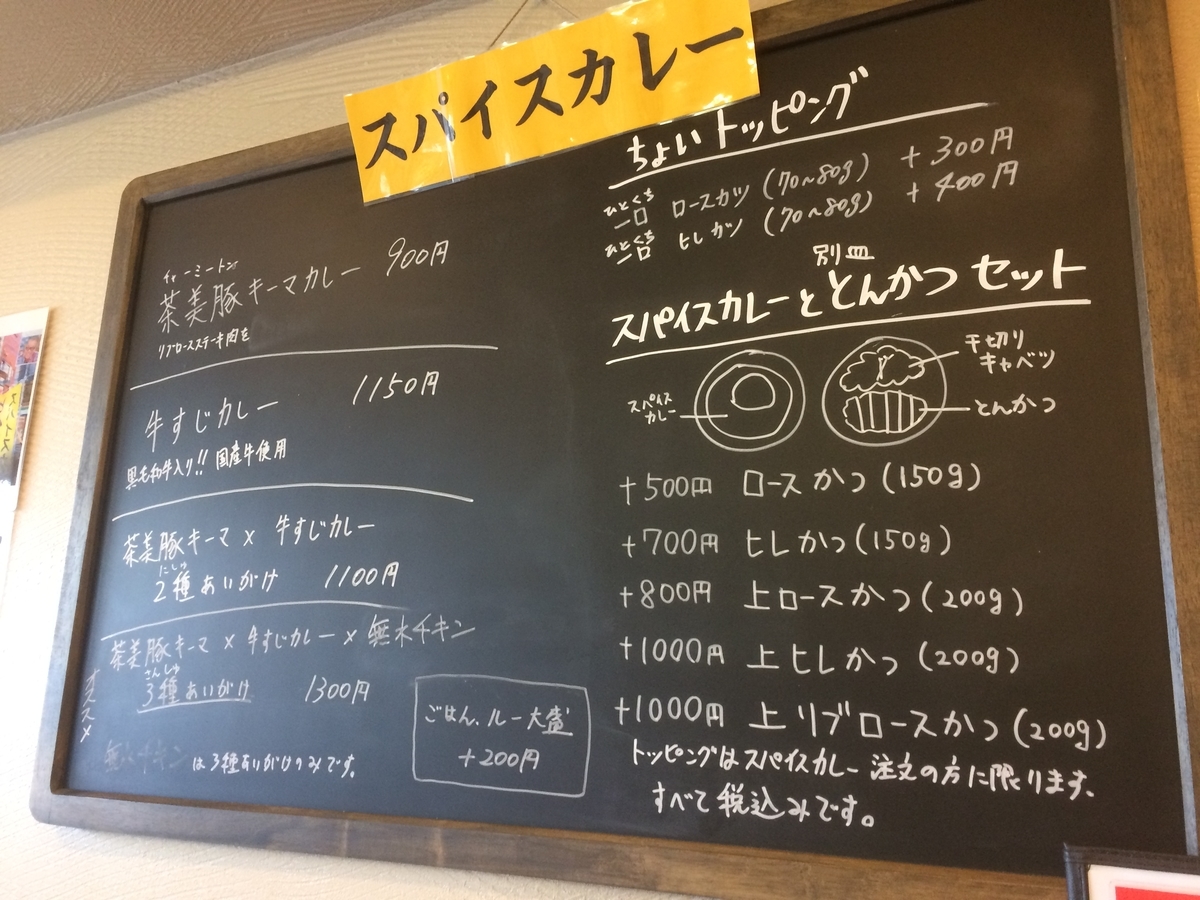 スパイスカレー
チャーミートン
茶美豚キーマカレー 900円
リブロースステーキ肉を
牛すじカレー 1150円
黒毛和牛入り!! 国産牛使用
茶美豚キーマ × 牛すじカレー
にしゅ
2種あいがけ 1100円
茶美豚キーマ × 牛すじカレー × 無水チキン
さんしゅ
3種あいがけ 1300円
オススメ
無水チキンは3種あいがけのみです。
ごはん、ルー大盛
+200円
ちょいトッピング
ひとくち
一口 ロースカツ (70~80g) +300円
ひとくち
一口 ヒレカツ (70~80g) +400円
別皿
スパイスカレーととんかつセット
千切り
キャベツ
スパイス
カレー
とんかつ
+500円 ロースかつ(150g)
+700円 ヒレかつ(150g)
+800円 上ロースかつ(200g)
+1000円 上ヒレかつ(200g)
+1000円 上リブロースかつ(200g)
トッピングはスパイスカレー注文の方に限ります。
すべて税込みです。